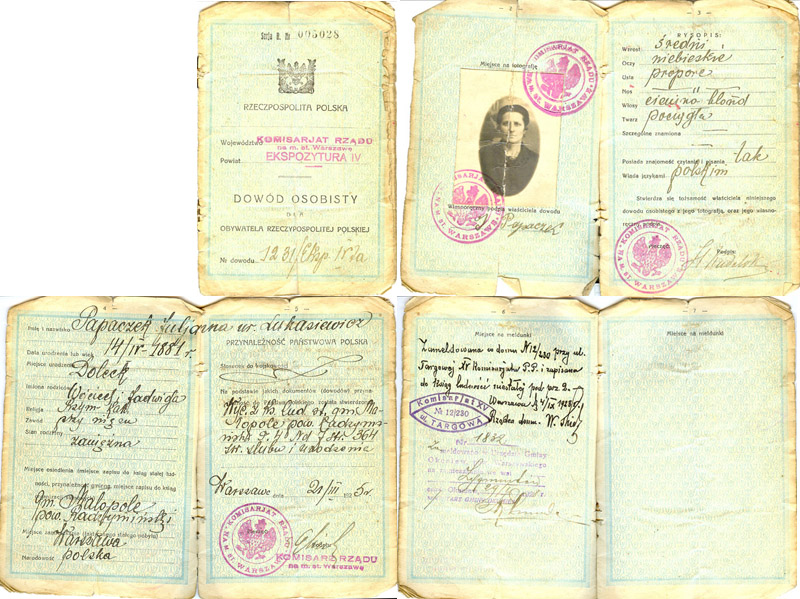 Serja B. Nr 005028
RZECZPOSPOLITA POLSKA
Województwo KOMISARJAT RZĄDU
na m. st. Warszawę
Powiat EKSPOZYTURA IV
DOWÓD OSOBISTY
DLA
OBYWATELA RZECZYPOSPOLITEJ POLSKIEJ
Nr dowodu 1231/Eksp. IV
2
Miejsce na fotografję
KOMISARJAT RZĄDU
NA M. ST. WARSZAWĘ
Własnoręczny podpis właściciela dowodu
J Papaczek
3
RYSOPIS:
Wzrost średni
Oczy niebieskie
Usta propore
Nos "
Włosy ciemna blond
Twarz pociągła
Szczególne znamiona
Posiada znajomość czytania i pisania tak
Włada językami polskim
Stwierdza się tożsamość właściciela niniejszego
dowodu osobistego z jego fotografją, oraz jego własno-
Podpis:
KOMISARJAT RZĄDU
NA M. ST. WARSZAWĘ
4
Imię i nazwisko Papaczek Juljanna ur. Łukasiewicz
Data urodzenia lub wiek 14/IV-1881 r.
Miejsce urodzenia Dołęck
Imiona rodziców Wójciech Jadwiga
Religja Rzym Kat.
Zawód przy mężu
Stan rodzinny zamężna
Miejsce osiedlenia (miejsce zapisu do ksiąg stałej lud-
ności, przynależność gminna, miejsce zapisu do ksiąg
gm. Małopole
pow. Radzymiński
Miejsce zamieszkania
Warszawa
Narodowość polska
5
PRZYNALEŻNOŚĆ PAŃSTWOWA POLSKA
Stosunek do wojskowości
Na podstawie jakich dokumentów (dowodów) przyna-
Wyc. z ks. lud st. gm. Ma-
łopole pow. Radzymi-
Nr 7 str. 364
Ślubu i urodzenia
Warszawa dnia 21/III 1925 r.
KOMISARJAT RZĄDU
NA M. ST. WARSZAWĘ
KOMISARJAT RZĄDU
na m. st. Warszawę
6
Miejsce na meldunki
Zameldowana w domu N 12/230 przy ul.
Targowej XV Komisarjatu P.P. i zapisana
do ksiąg ludności niestałej pod
Warszawa d 4/IX 1925 r.
Rządca domu
Komisarjat XV
№ 12/230
ul. TARGOWA
1832
Urzędu Gminy
Okuniew
7
Miejsce na meldunki